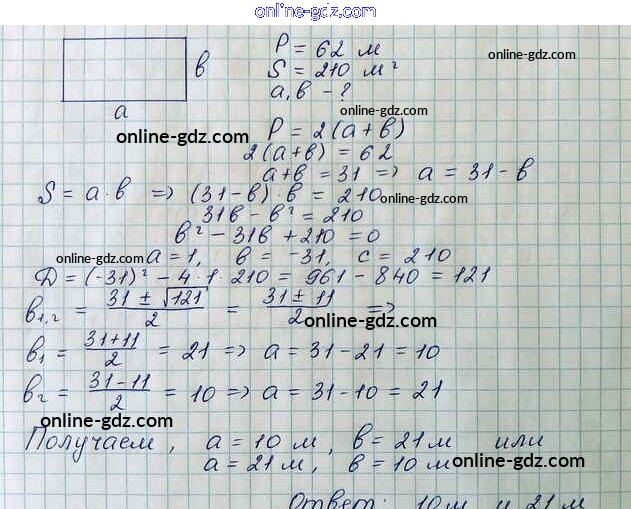 online-gdz.com
P = 62 м
online-gdz.com
в
S = 210 м²
a, в - ?
a
online-gdz.com
online-gdz.com
P = 2(a+в)
2(a+в) = 62
a+в = 31 => a = 31 - в
S = a · в => (31-в) · в = 210
online-gdz.com
31в - в² = 210
в² - 31в + 210 = 0
online-gdz.com
a = 1, в = -31, c = 210
Д = (-31)² - 4 · 1 · 210 = 961 - 840 = 121
в1,2 = (31 ± √121)/2 = (31 ± 11)/2 =>
online-gdz.com
в1 = (31+11)/2 = 21 => a = 31 - 21 = 10
в2 = (31-11)/2 = 10 => a = 31 - 10 = 21
online-gdz.com
Получаем, a = 10 м, в = 21 м или
a = 21 м, в = 10 м
online-gdz.com
Ответ: 10 м и 21 м